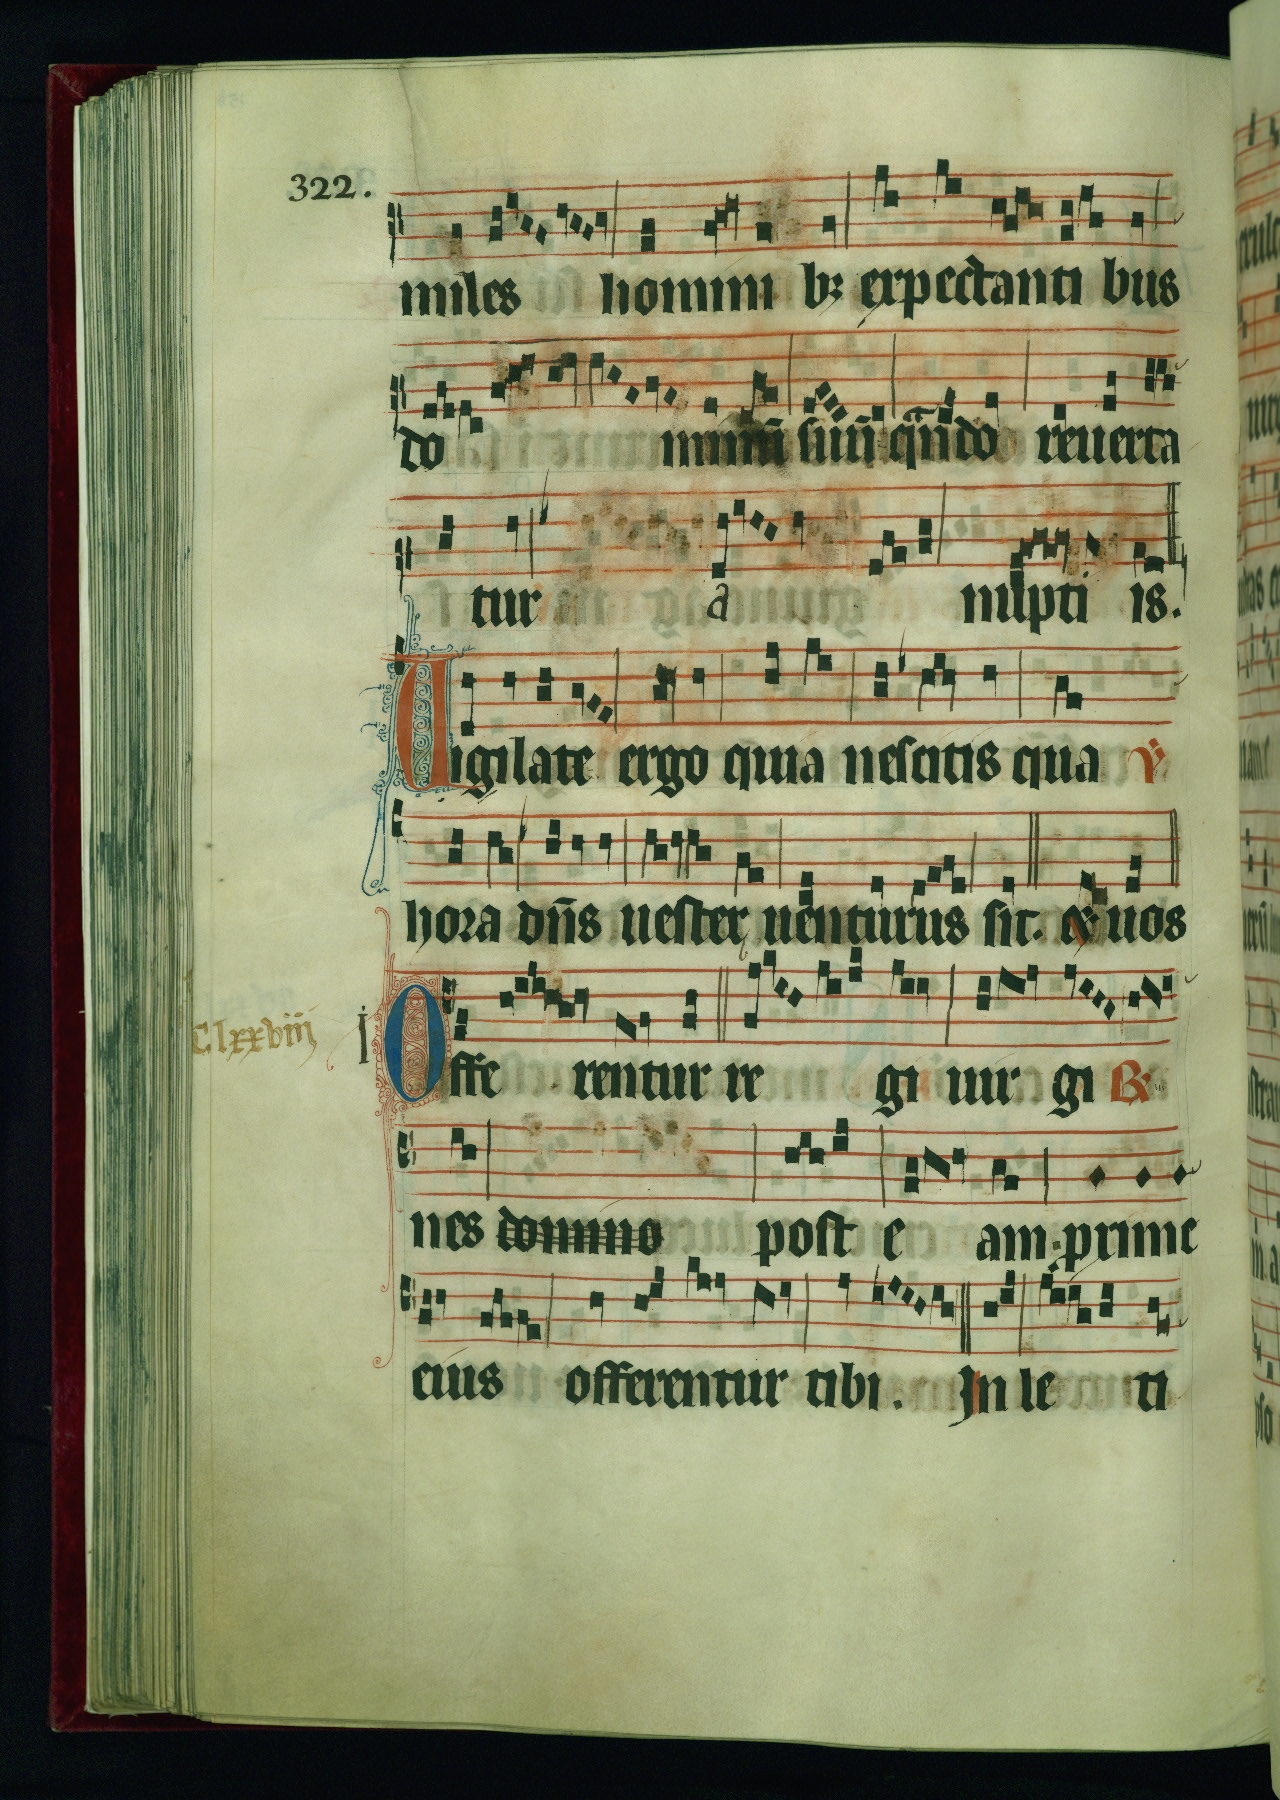 322.
miles homini bꝫ expectanti bus
do minũ suũ qñdo reuerta
tur a nupti is.
Uigilate ergo quia nescitis qua ℣
hora dñs uester uenturus sit. et uos
Clxxviii I Offe rentur re gi uir gi ℟
nes domino post e am. prime
eius offerentur tibi. In le ti